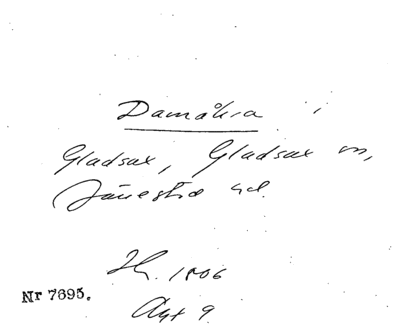 Damåkra
Gladsax, Gladsax sn,
Järrestad hd.
Hr. 1806
Nr 7695.
Akt 9